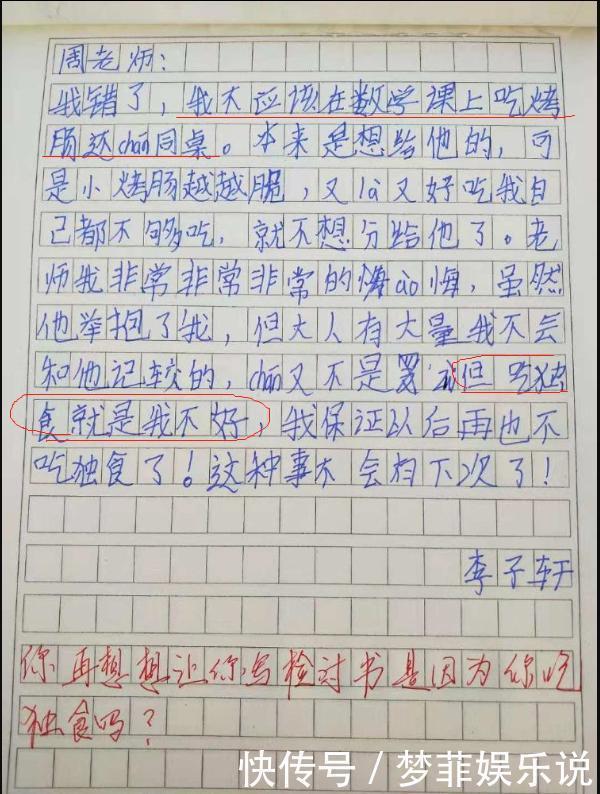 周老师:
我错了，我不应该在数学课上吃烤
肠还chán同桌。本来是想给他的，可
是小烤肠越越脆，又là又好吃我自
己都不够吃，就不想分给他了。老
师我非常非常非常的懊ào悔，虽然
他举抱了我，但大人有大量我不会
和他记较的，chán又不是罪 但吃独
食就是我不好，我保证以后再也不
吃独食了！这种事不会有下次了！
李子轩
你再想想让你写检讨书是因为你吃
独食吗？
快传号/梦菲娱乐说